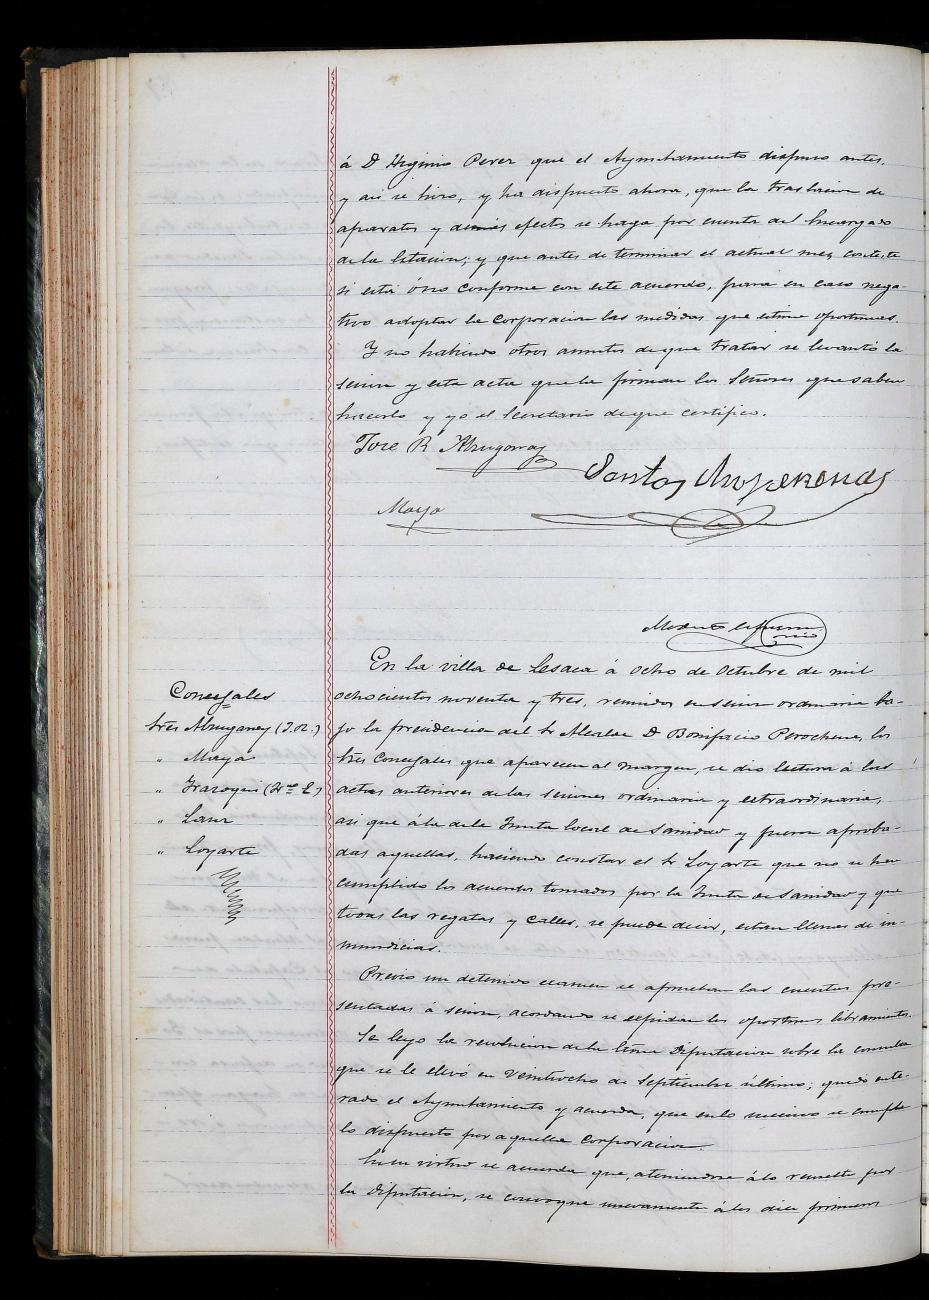 á D. Higinio Perez que el Ayuntamiento dispuso antes,
y asi se hizo, y ha dispuesto ahora, que la traslacion de
aparatos y demás efectos se haga por cuenta del Encargado
de la Estacion; y que antes de terminar el actual mes conteste
si está ó no conforme con este acuerdo, para en caso nega-
tivo adoptar la Corporacion las medidas que estime oportunas.
Y no habiendo otros asuntos de que tratar se levantó la
sesion y esta acta que la firman los Señores que saben
hacerlo y yo el Secretario de que certifico.
Jose R. Abrugaray
Santos
Maya
Modesto
En la villa de Lesaca á ocho de Octubre de mil
ochocientos noventa y tres, reunidos en sesion ordinaria ba-
jo la presidencia del Sr Alcalde D. Bonifacio Perochena, los
Sres Concejales que aparecen al margen, se dio lectura á las
actas anteriores de las sesiones ordinaria y extraordinaria,
asi que á la de la Junta local de Sanidad y fueron aproba-
das aquellas, haciendo constar el Sr Loyarte que no se han
cumplido los acuerdos tomados por la Junta de Sanidad y que
todas las regatas y calles, se puede decir, estan llenas de in-
mundicias.
Concejales
Sres Abrugaray (J.R.)
" Maya
" Irazoqui
"
" Loyarte
Previo un detenido examen se aprueban las cuentas pre-
sentadas á sesion, acordando se espidan los oportunos libramientos.
Se leyo la resolucion de la Excma Diputacion sobre la consulta
que se le elevó en Veintiocho de Septiembre último; quedó ente-
rado el Ayuntamiento y acuerda, que en lo sucesivo se cumpla
lo dispuesto por aquella Corporacion.
En su virtud se acuerda que, ateniendose á lo resuelto por
la Diputacion, se convoque nuevamente á los diez primeros